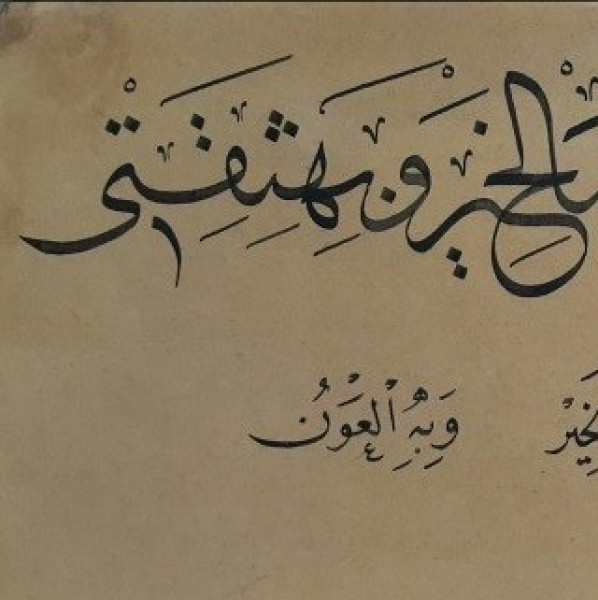 بالخير وبه ثقتى
لخيْر وَبِهِ الْعَوْنُ